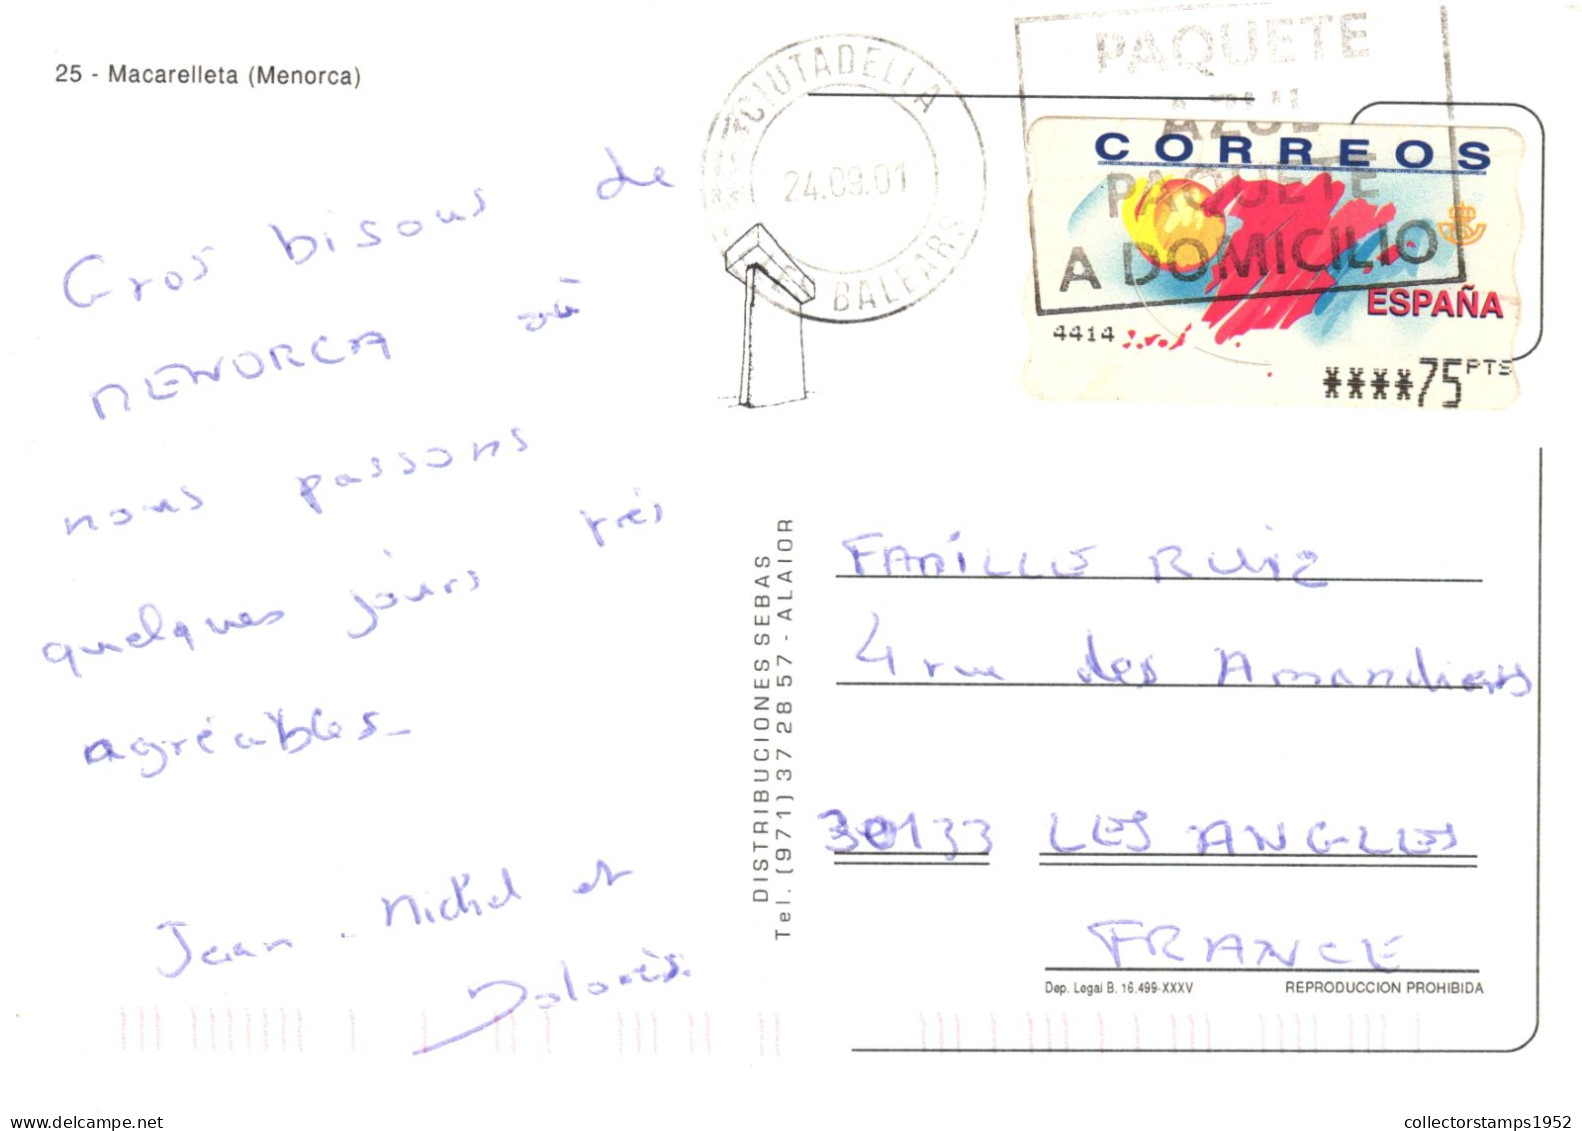 25 - Macarelleta (Menorca)
Gros bisous de
MENORCA où
nous passons
quelques jours très
agréables_
Jean - Michel et
Dolorès.
CIUTADELLA
24.09.01
BALEARS
PAQUETE
AZUL
PAQUETE
A DOMICILIO
CORREOS
ESPAÑA
4414
****75 PTS
DISTRIBUCIONES SEBAS
Tel. (971) 37 28 57 - ALAIOR
FAMILLE RUIZ
4 rue des Amandiers
30133 LES ANGLES
FRANCE
Dep. Legal B. 16.499-XXXV
REPRODUCCION PROHIBIDA
collectorstamps1952